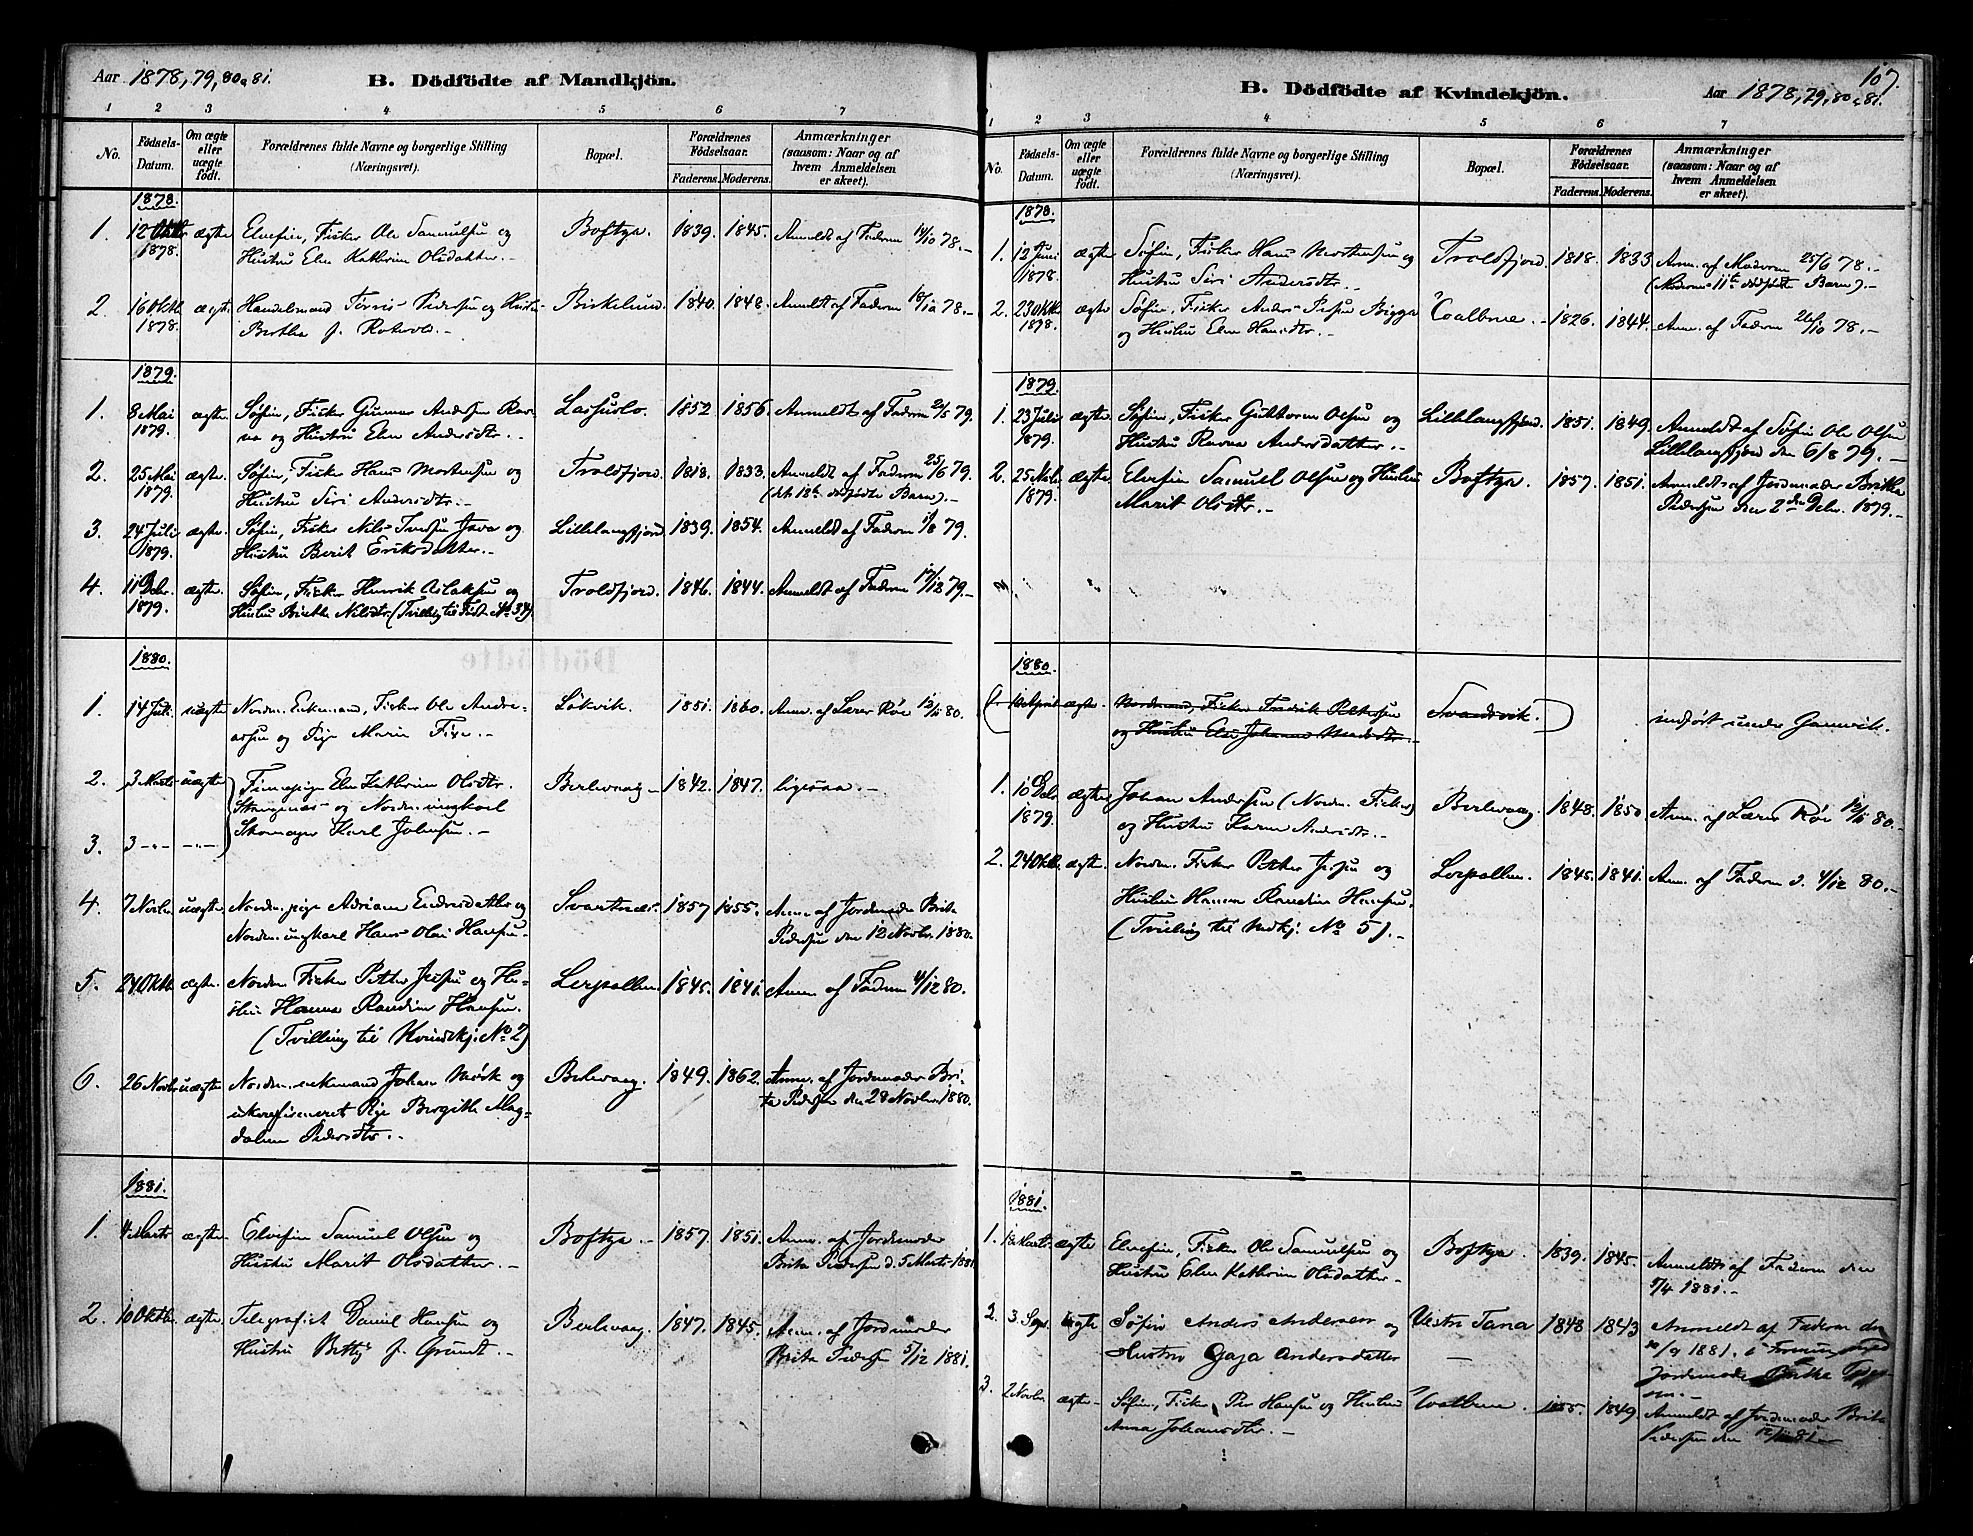 Aar 1878, 79, 80 & 81.
B. Dödfödte af Mandkjön.
1 2 3 4 5 6 7
No.
Födsels-
Datum.
Om ægte
eller
uægte
födt.
Forældrenes fulde Navne og borgerlige Stilling
(Næringsvei).
Bopæl.
Forældrenes
Födselsaar.
Faderens. Moderens.
Anmærkninger
(saasom: Naar og af
hvem Anmeldelsen
er skeet).
1878.
1. 12 Oktbr ægte Elvefin, Fisker Ole Samuelsen og Boftya. 1839. 1845. Anmeldt af Faderen 14/10 78.-
1878. Hustru Elen Kathrine Olsdatter.-
2. 16 Oktbr ægte Handelsmand Pedersen og Hustru Birkelund. 1840. 1848. Anmeldt af Faderen 18/10 78.-
1878. Berthe f.
1879.
1. 8 Mai ægte. Søfin, Fisker Gunnar Andersen 1852 1856. Anmeldt af Faderen 21/5 79.
1879. og Hustru Elen Andersdtr.-
2. 25 Mai ægte. Søfin, Fisker Hans Mortensen og Troldfjord. 1818. 1833. Anmeldt af Faderen 25/6 79.
1879. Hustru Siri Andersdtr.- (det 12te dødfødte Barn).-
3. 24 Juli ægte. Søfin, Fisker Nils Iversen Java og Lillelangfjord 1839. 1854. Anmeldt af Faderen 1/8 79.
1879. Hustru Berit Eriksdatter.-
4. 11 Debr. ægte. Søfin, Fisker Henrik Aslaksen og Troldfjord. 1846. 1844. Anmeldt af Faderen 17/12 79.-
1879. Hustru Birthe Nilsdtr. (Tvilling til Født No 34)
1880.
1. 14 Juli. uægte Nordm. Enkemand, Fisker Ole Andre- Løkvik. 1851. 1860. Anm. af Lærer Røe 12/5 80.
assen og Pige Marie
2. 3 Marts uægte Finnepige Elen Kathrine Olsdtr. Berlevaag - 1842. 1847. ligesaa.-
og Nordm. ungkarl
3. 3 -"- -"- Skomager Karl Johnsen.-
4. 7 Novbr. uægte Nordm. pige Adriane Endresdatter og Svartnes. 1857 1855. Anm. af Jordemoder Brita
Nordm. ungkarl Hans Olai Hansen.- Pedersen den 12 Novbr. 1880.
5. 24 Oktbr. ægte. Nordm. Fisker Petter Jessen og Hu- Leirpollen. 1845. 1841. Anm. af Faderen 4/12 80.
stru Hanna Randine Hansen.
(Tvilling til Kvindekj. No 2)
6. 26 Novbr uægte Nordm. enkemand Johan Mørk og Berlevaag. 1849. 1862. Anm. af Jordemoder Bri-
ukonfirmeret Pige Birgithe Mag- ta Pedersen den 28 Novbr 1880.
dalene Pedersdtr.-
1881.
1. 4 Marts ægte- Elvefin Samuel Olsen og Boftya.- 1857. 1851. Anm. af Jordemoder
Hustru Marit Olsdatter.- Brita Pedersen d. 5 Marts 1881
2. 10 Oktbr. ægte. Telegrafist Daniel Hansen og Berlevaag. 1847. 1845. Anm. af Jordemoder
Hustru Betty f. Grundt.- Brita Pedersen 5/12 1881.
107.
B. Dödfödte af Kvindekjön.
Aar 1878, 79, 80 & 81.
1 2 3 4 5 6 7
No.
Födsels-
Datum.
Om ægte
eller
uægte
födt.
Forældrenes fulde Navne og borgerlige Stilling
(Næringsvei).
Bopæl.
Forældrenes
Födselsaar.
Faderens. Moderens.
Anmærkninger
(saasom: Naar og af
hvem Anmeldelsen
er skeet).
1878.
1. 12 Juni ægte Søfin, Fisker Hans Mortensen og Troldfjord. 1818. 1833 Anm. af Moderen 25/6 78.-
1878. Hustru Siri Andersdtr.- (Moderens 11te dødfødte Barn).-
2. 23 Oktbr. ægte. Søfin, Fisker Anders Persen Bigga 1826. 1844. Anm. af Faderen 26/10 78.-
1878. og Hustru Elen Hansdtr.-
1879.
1. 23 Juli ægte. Søfin, Fisker Guttorm Olsen og Lillelangfjord. 1851. 1849. Anmeldt af Søfin Ole Olsen
1879. Hustru Ravna Andersdatter.- Lillelangfjord den 6/8 79.-
2. 25 Novbr. ægte. Elvefin Samuel Olsen og Hustru Boftya. 1857. 1851. Anmeldt af Jordemoder Britha
1879. Marit Olsdtr.- Pedersen den 2den Debr. 1879.-
1880.
1. April ægte. Nordmand, Fisker Fredrik Pettersen Svandsvik. indført under Gamvik.
og Hustru Else Johanne Madsdtr.-
1. 10 Debr. ægte Johan Andersen (Nordm. Fisker) Berlevaag. 1848. 1850. Anm. af Lærer Røe 12/5 80.-
1879. og Hustru Karen Andersdtr.-
2. 24 Oktb. ægte. Nordm. Fisker Petter Jessen og Leirpollen. 1845. 1841. Anm. af Faderen d. 4/12 80.-
Hustru Hanna Randine Hansen.
(Tvilling til Mdkj. No 5).-
1881.
1. Marts. ægte Elvefin, Fisker Ole Samuelsen og Boftya. 1839. 1845. Anmeldt af Faderen den
Hustru Elen Kathrine Olsdatter.- 5/4 1881.-
2. 3. Sept. ægte Søfin Anders Andersen og Vestre Tana 1848 1843 Anmeldt af Faderen den
Hustru Gaja Andersdatter - /9 1881.
Jordemoder
3. 2 Novbr. ægte- Søfin, Fisker Per Hansen og Hustru 1855. 1849 Anmeldt af Jordemoder Brita
Anna Johansdtr.- Pedersen den 12/11 81.-